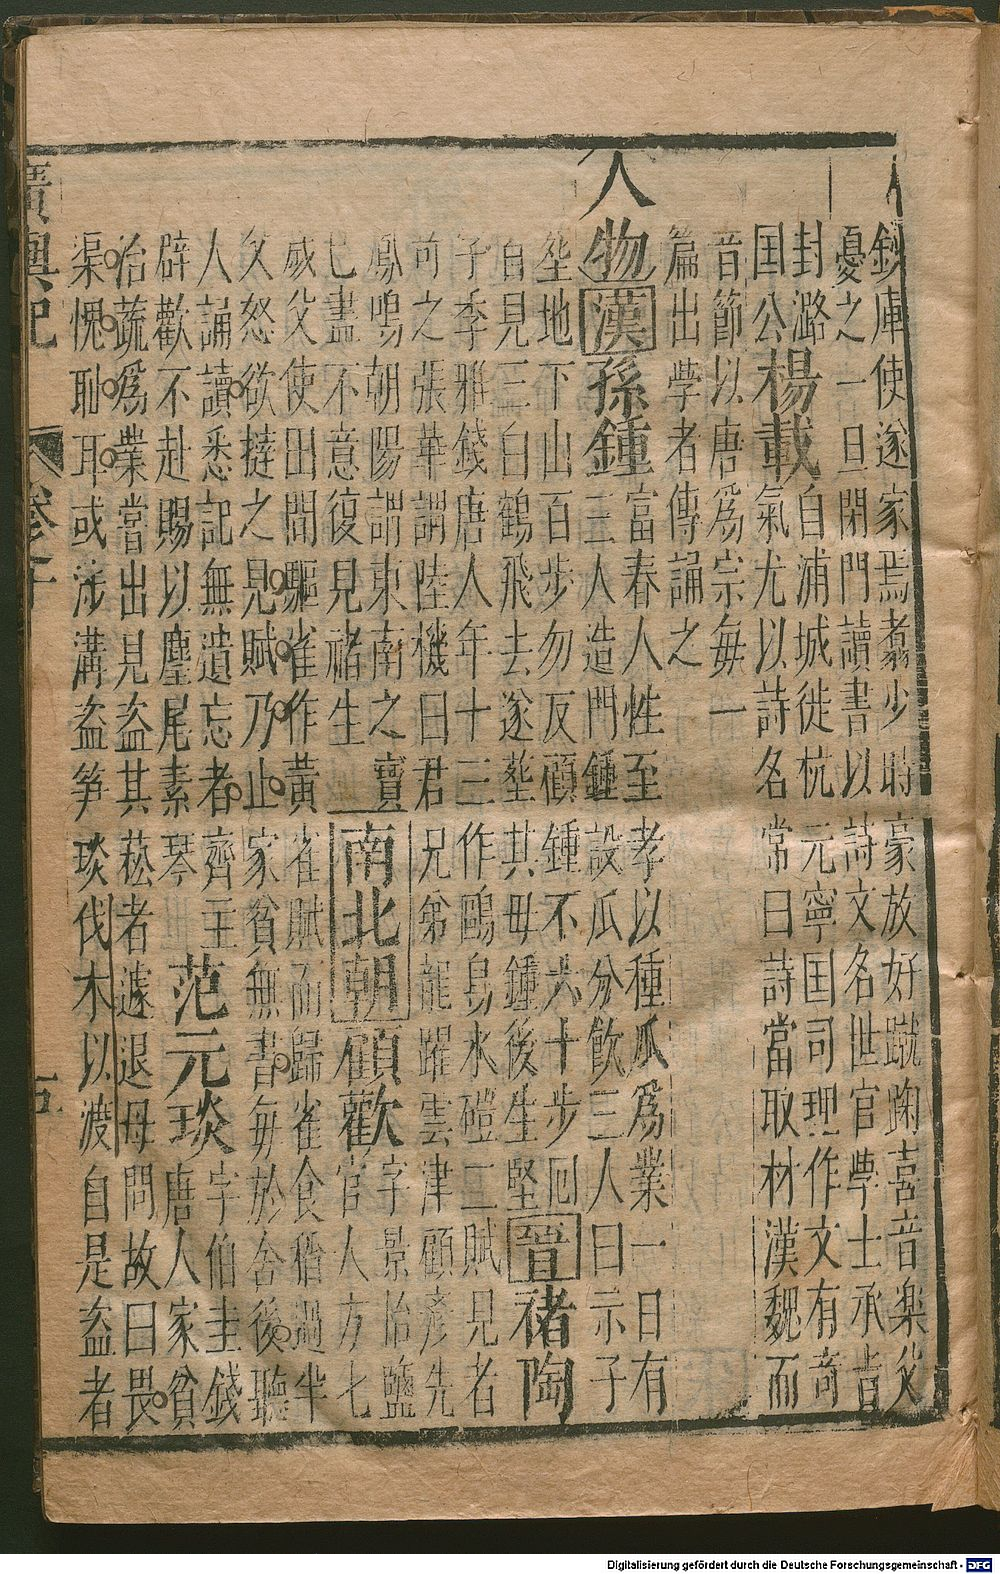 鈔庫使遂家焉翥少時豪放好蹴踘喜音樂父
憂之一旦閉門讀書以詩文名世官學士承旨
封潞
囯公
楊載
自浦城徙杭元寧囯司理作文有奇
氣尤以詩名常曰詩當取材漢魏而
音節以唐爲宗每一
篇出學者傳誦之
人物漢孫鍾
富春人性至孝以種瓜爲業一日有
三人造門鍾設瓜分飲三人曰示子
塋地下山百步勿反顧鍾不六十步囘
自見三白鶴飛去遂塟其母鍾後生堅
晉褚陶
字季雅錢唐人年十三作鷗鳥水磑二賦見者
奇之張華謂陸機曰君兄弟龍躍雲津顧彥先
鳳鳴朝陽謂東南之寶
已盡不意復見褚生
南北朝顧歡
字景怡鹽
官人方七
歲父使田間驅雀作黃雀賦而歸雀食稻過半
父怒欲撻之見賦乃止家貧無書每於舍後聽
人誦讀悉記無遺忘者齊主
辟歡不赴賜以麈尾素琴
范元琰
字伯圭錢
唐人家貧
治蔬爲業嘗出見盜其菘者遽退母問故曰畏
渠愧恥耳或涉溝盜筍琰伐木以渡自是盜者
廣輿記 卷十
Digitalisierung gefördert durch die Deutsche Forschungsgemeinschaft - DFG